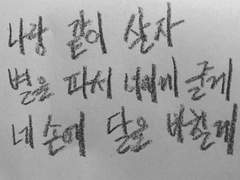 나랑 같이 살자
별을 따서 너에게 줄게
네 손에 달을 바칠게